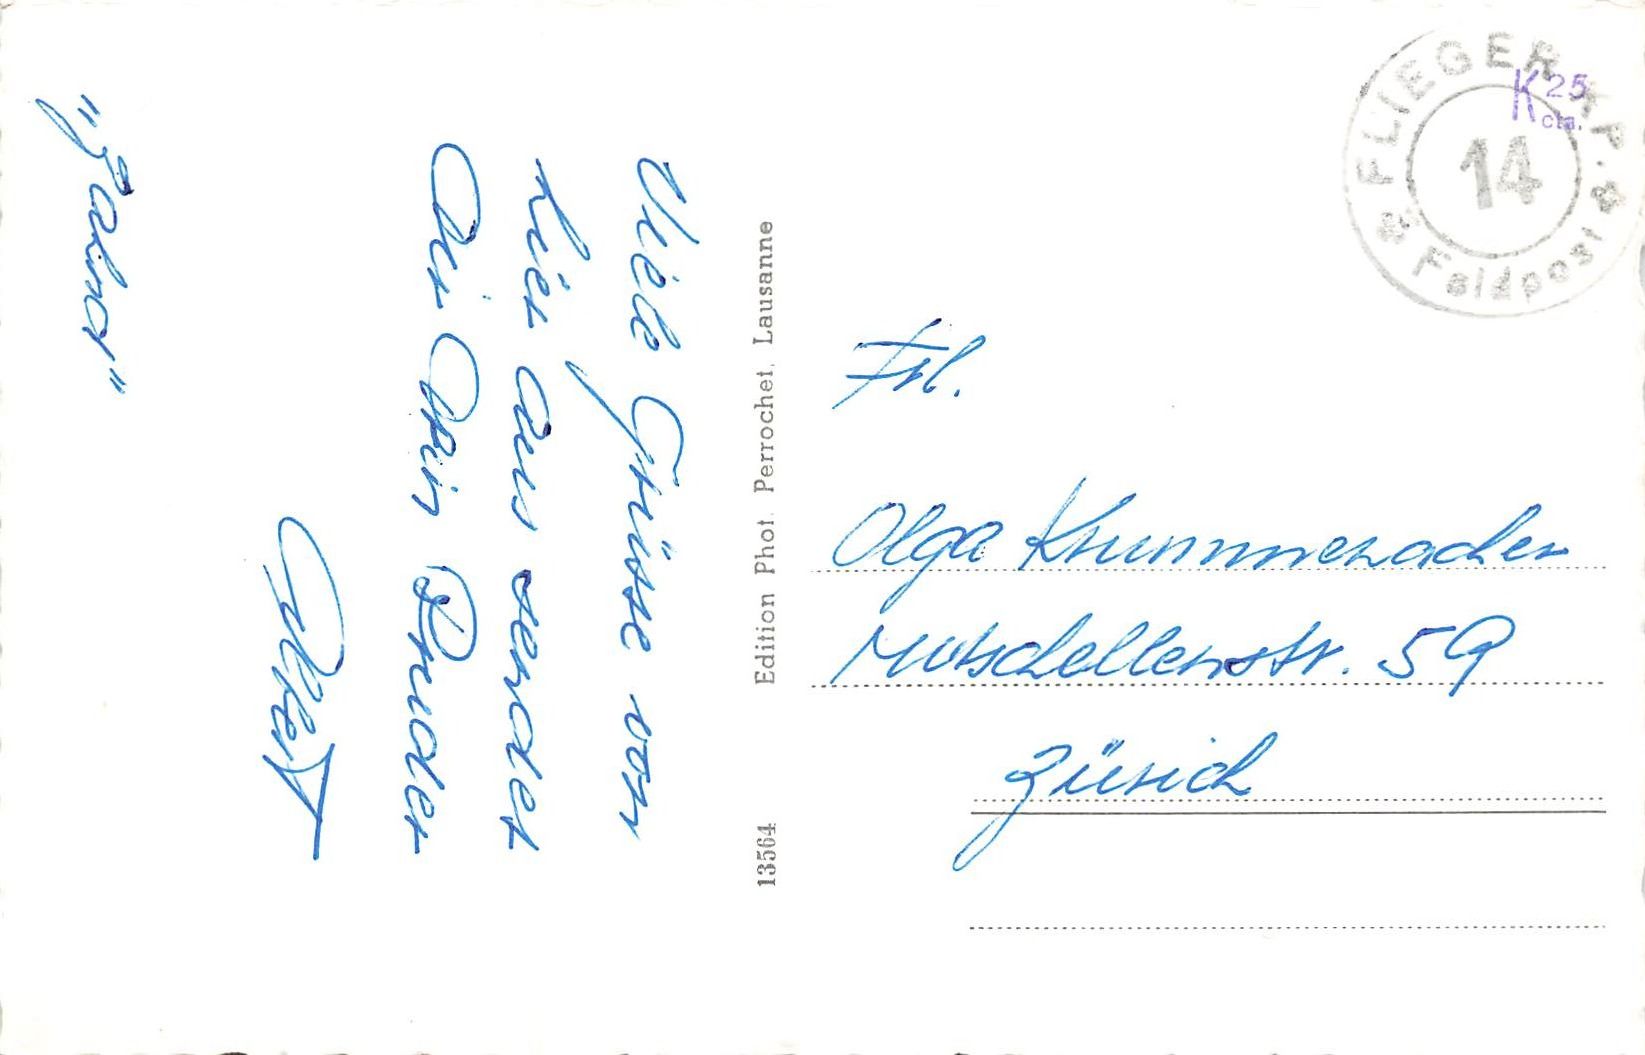 Viele Grüsse von
hier aus sendet
Dir Dein Bruder
Albert
"Zahor"
Edition Phot. Perrochet, Lausanne
13564
FLIEGER KP.
14
Feldpost
K 25
cts.
Frl.
Olga Krummenacher
Mutschellenstr. 59
Zürich